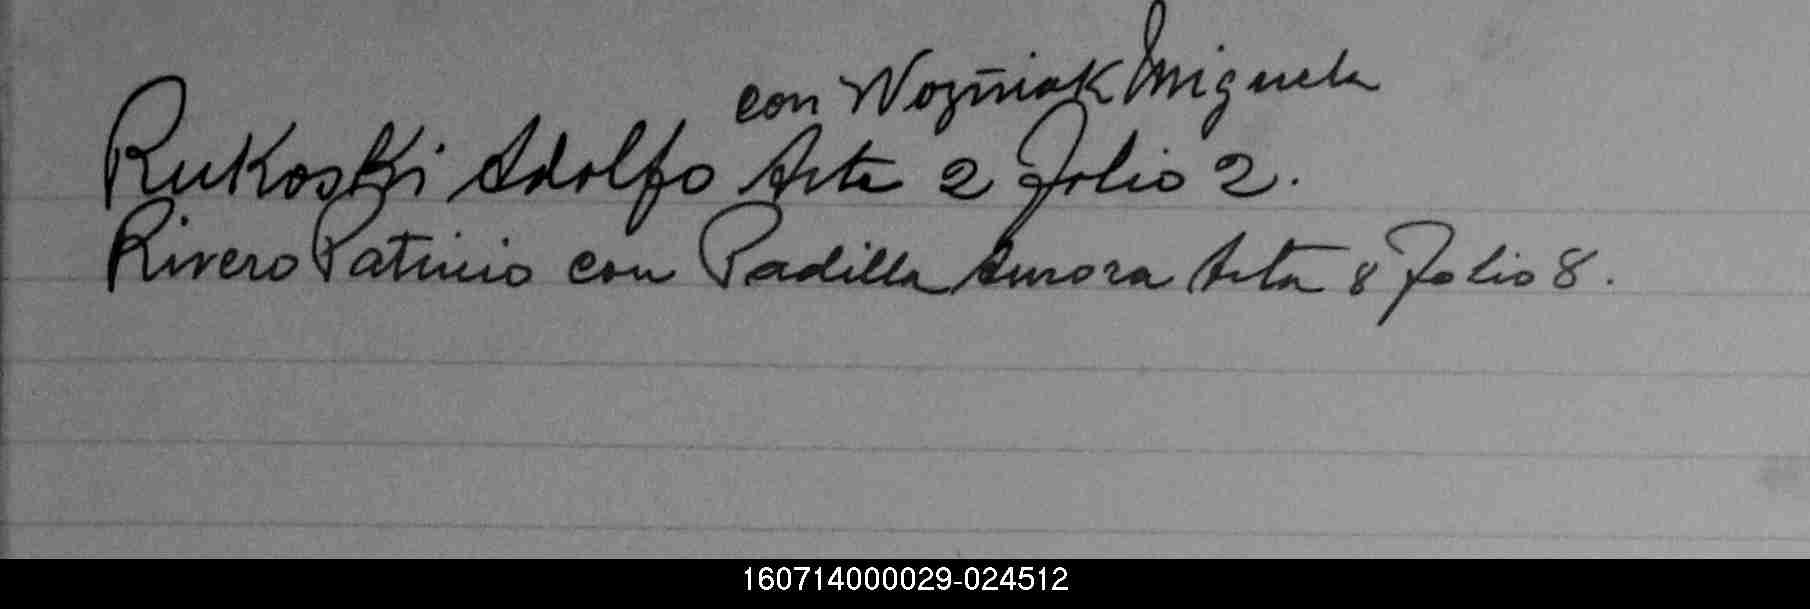 con Wozñiak Miguela
Rukoski Adolfo Acta 2 Folio 2.
Rivero Patricio con Padilla Aurora Acta 8 Folio 8.
160714000029-024512